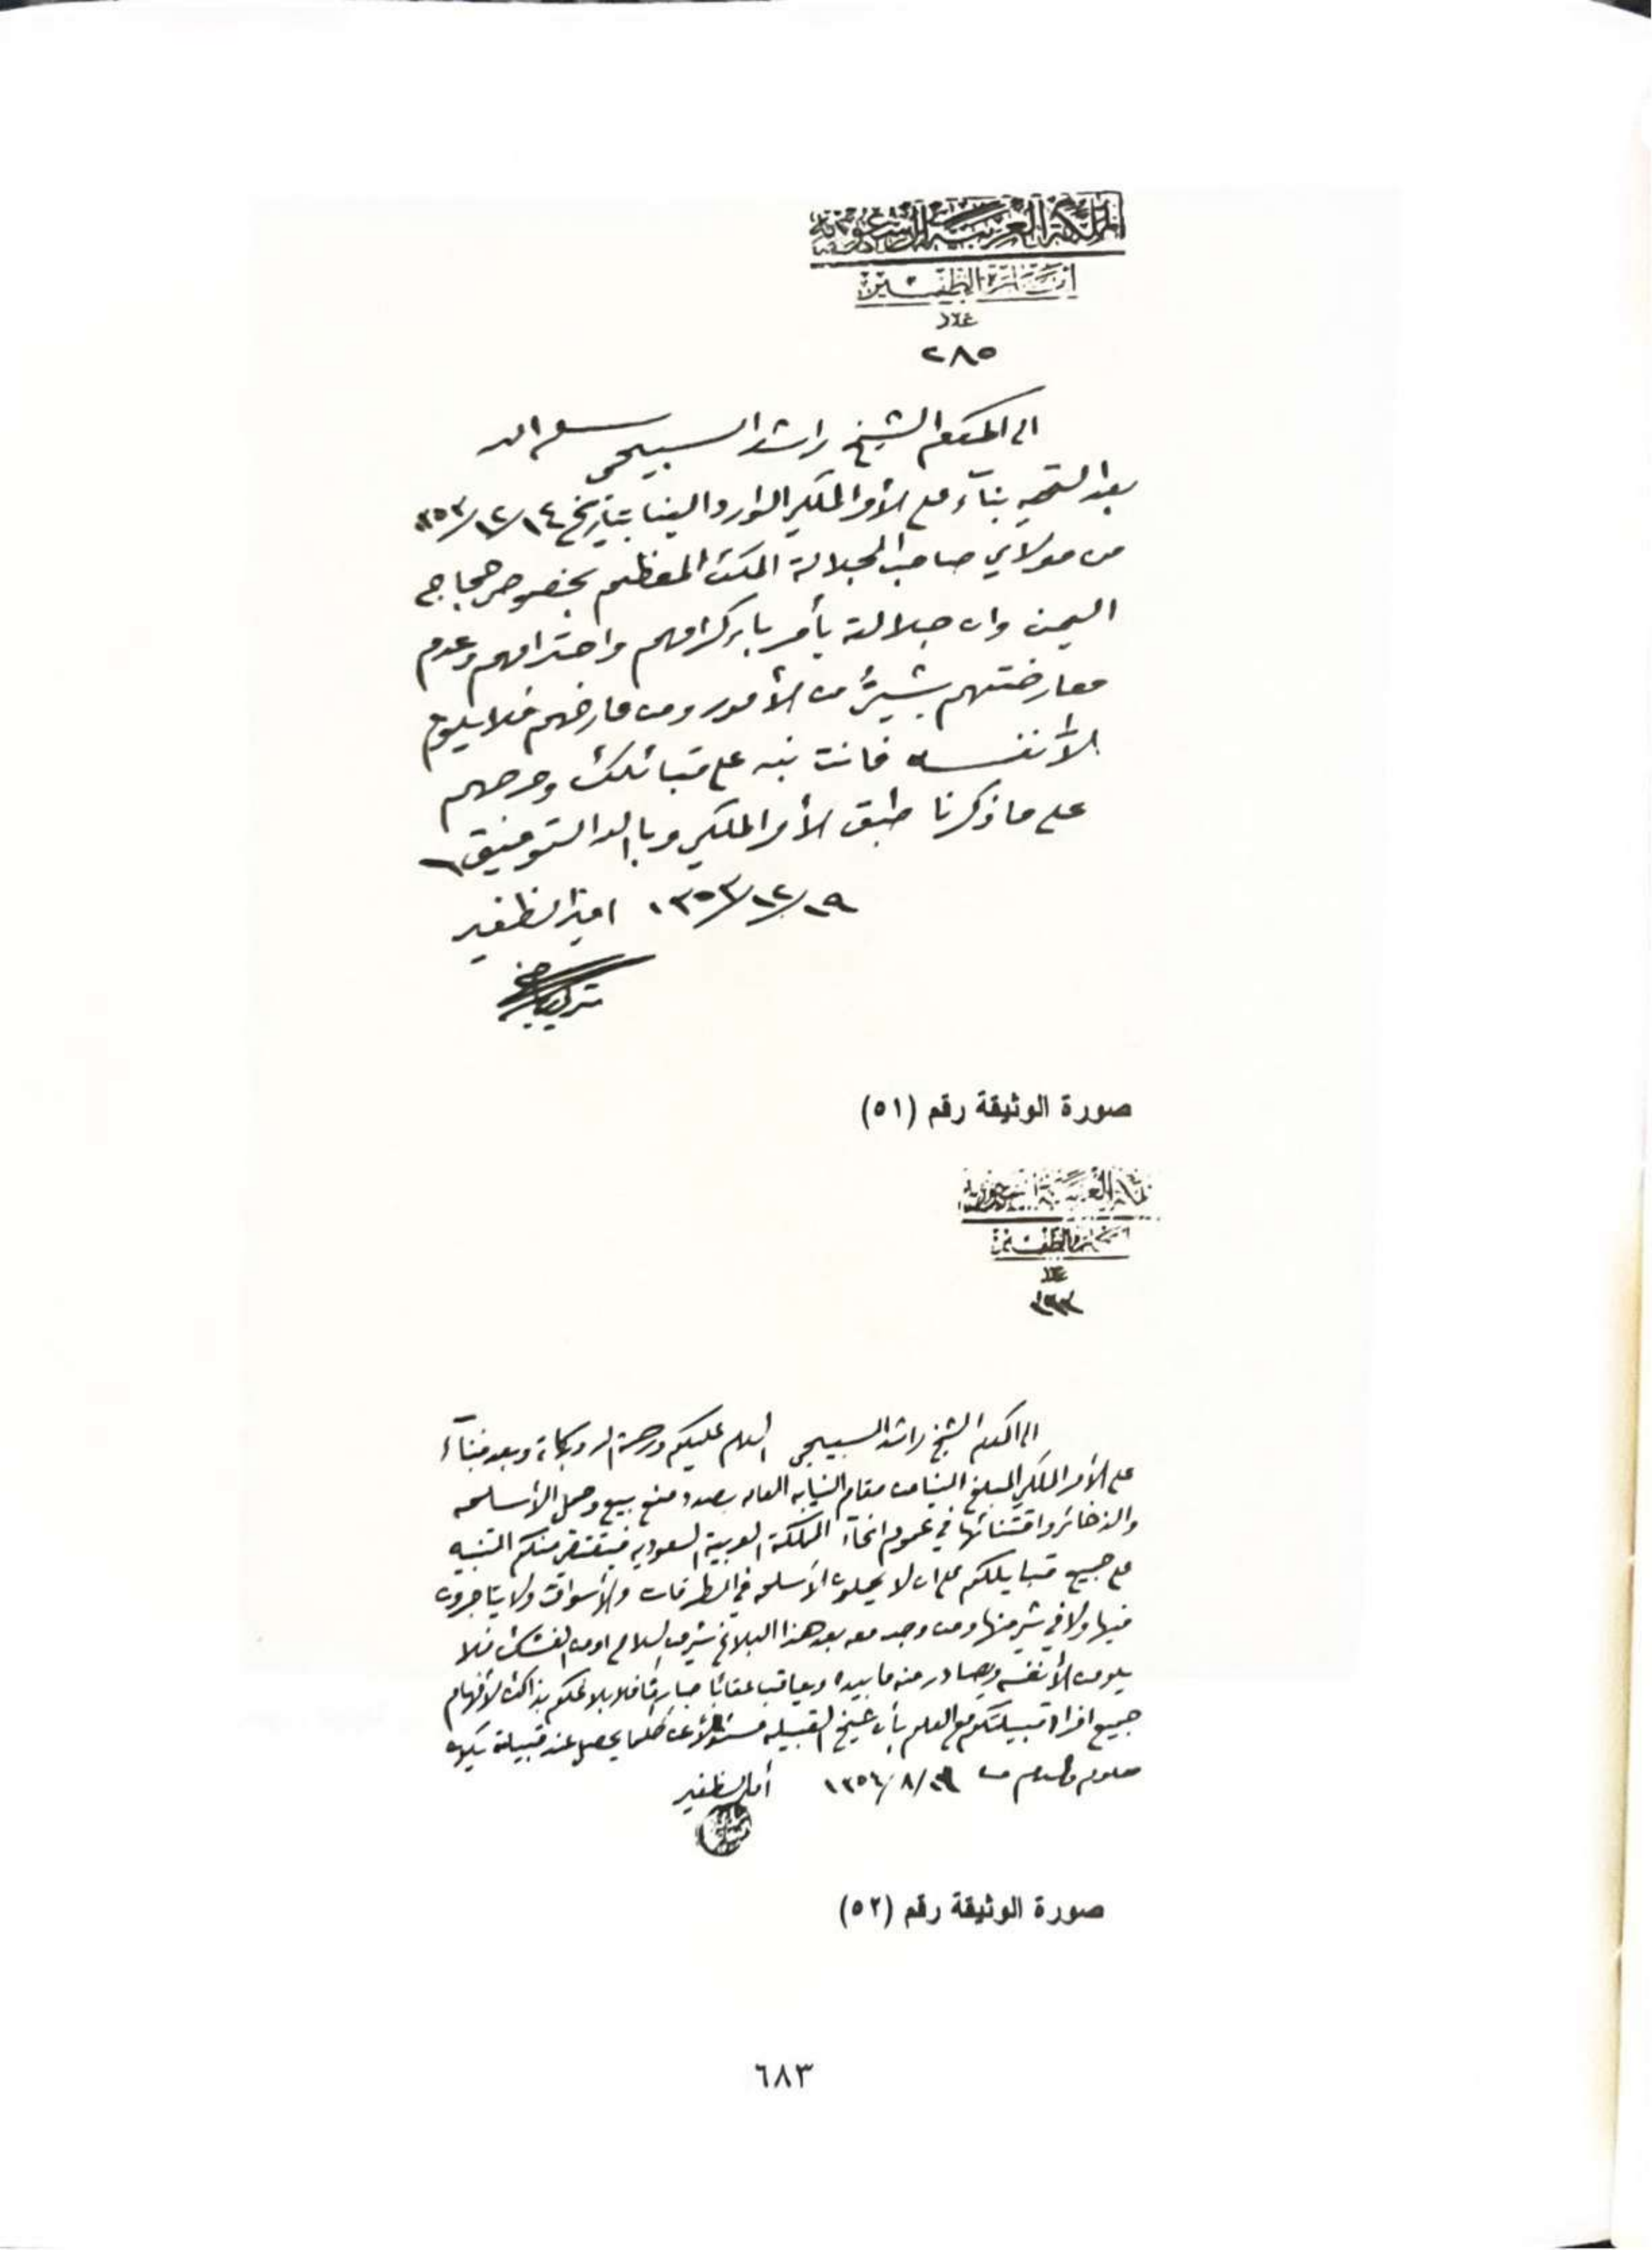 المملكة العربية السعودية
امارة الظفير
عدد
٢٨٥
الى المكرم الشيخ راشد السبيحي سلمه الله
بعد التحيه بنآء على الأمر الملكي الوارد الينا بتاريخ ١٣٥٣/١٢/١٤
من مولاي صاحب الجلالة الملك المعظم بخصوص حجاج
اليمن وان جلالته يأمر بإكرامهم واحترامهم وعدم
معارضتهم بشيئ من الأمور ومن عارضهم فلا يلوم
الا نفسه فانت نبه على قبائلك وحرصهم
على ما ذكرنا طبق الأمر الملكي وبالله التوفيق
١٣٥٣/١٢/١٩ امير الظفير
صورة الوثيقة رقم (٥١)
المملكة العربية السعودية
امارة الظفير
عدد
الى المكرم الشيخ راشد السبيحي السلام عليكم ورحمة الله وبركاته وبعد فبنآء
على الأمر الملكي المبلغ الينا من مقام النيابه العامه بصدد منع بيع وحمل الأسلحه
والذخائر واقتنائها في عموم انحآء المملكة العربية السعوديه فيقتضي منكم التنبيه
على جميع قبايلكم على ان لا يحملون الأسلحه في الطرقات والأسواق ولا يتاجرون
فيها ولا في شي منها ومن وجد معه بعد هذا البلاغ شي من السلاح او من الفشك فلا
يلومن الا نفسه ويصادر منه ما بيده ويعاقب عقابا صارما بلاغكم بذالك لافهام
جميع افراد قبيلتكم مع العلم بأن شيخ القبيله مسئولا عن كلما يحصل عند قبيلته يكون
معلوم والسلام ١٣٥٦/٨/ أمير الظفير
صورة الوثيقة رقم (٥٢)
٦٨٣